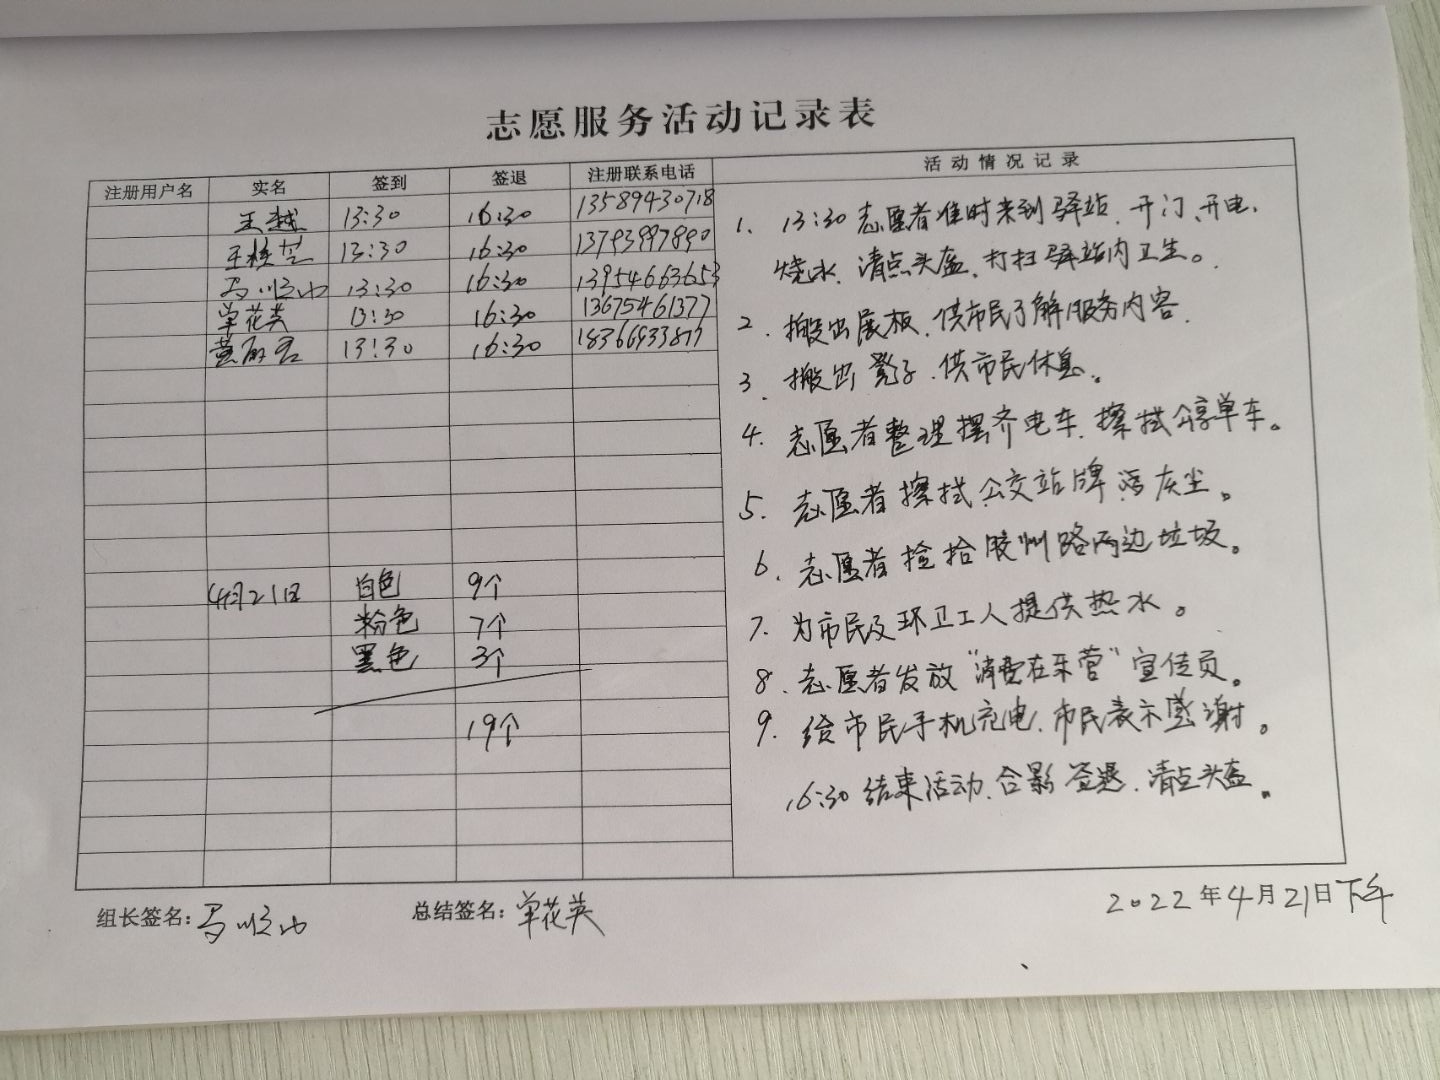 志愿服务活动记录表
注册用户名 实名 签到 签退 注册联系电话 活动情况记录
王越 13:30 16:30 13589430718
王桂芝 13:30 16:30 13793997890
马顺山 13:30 16:30 13954663653
单花英 13:30 16:30 13675461377
黄丽君 13:30 16:30 18366933877
4月21日 白色 9个
粉色 7个
黑色 3个
19个
1. 13:30志愿者准时来到驿站、开门、开电、
烧水、清点头盔、打扫驿站内卫生。
2. 搬出展板、供市民了解服务内容.
3. 搬出凳子、供市民休息。
4. 志愿者整理摆齐电车、擦拭公享单车。
5. 志愿者擦拭公交站牌 灰尘。
6. 志愿者捡拾胶州路两边垃圾。
7. 为市民及环卫工人提供热水。
8. 志愿者发放“消费在东营”宣传员。
9. 给市民手机充电、市民表示感谢。
16:30结束活动、合影 签退、清点头盔。
组长签名: 马顺山 总结签名: 单花英 2022年4月21日下午